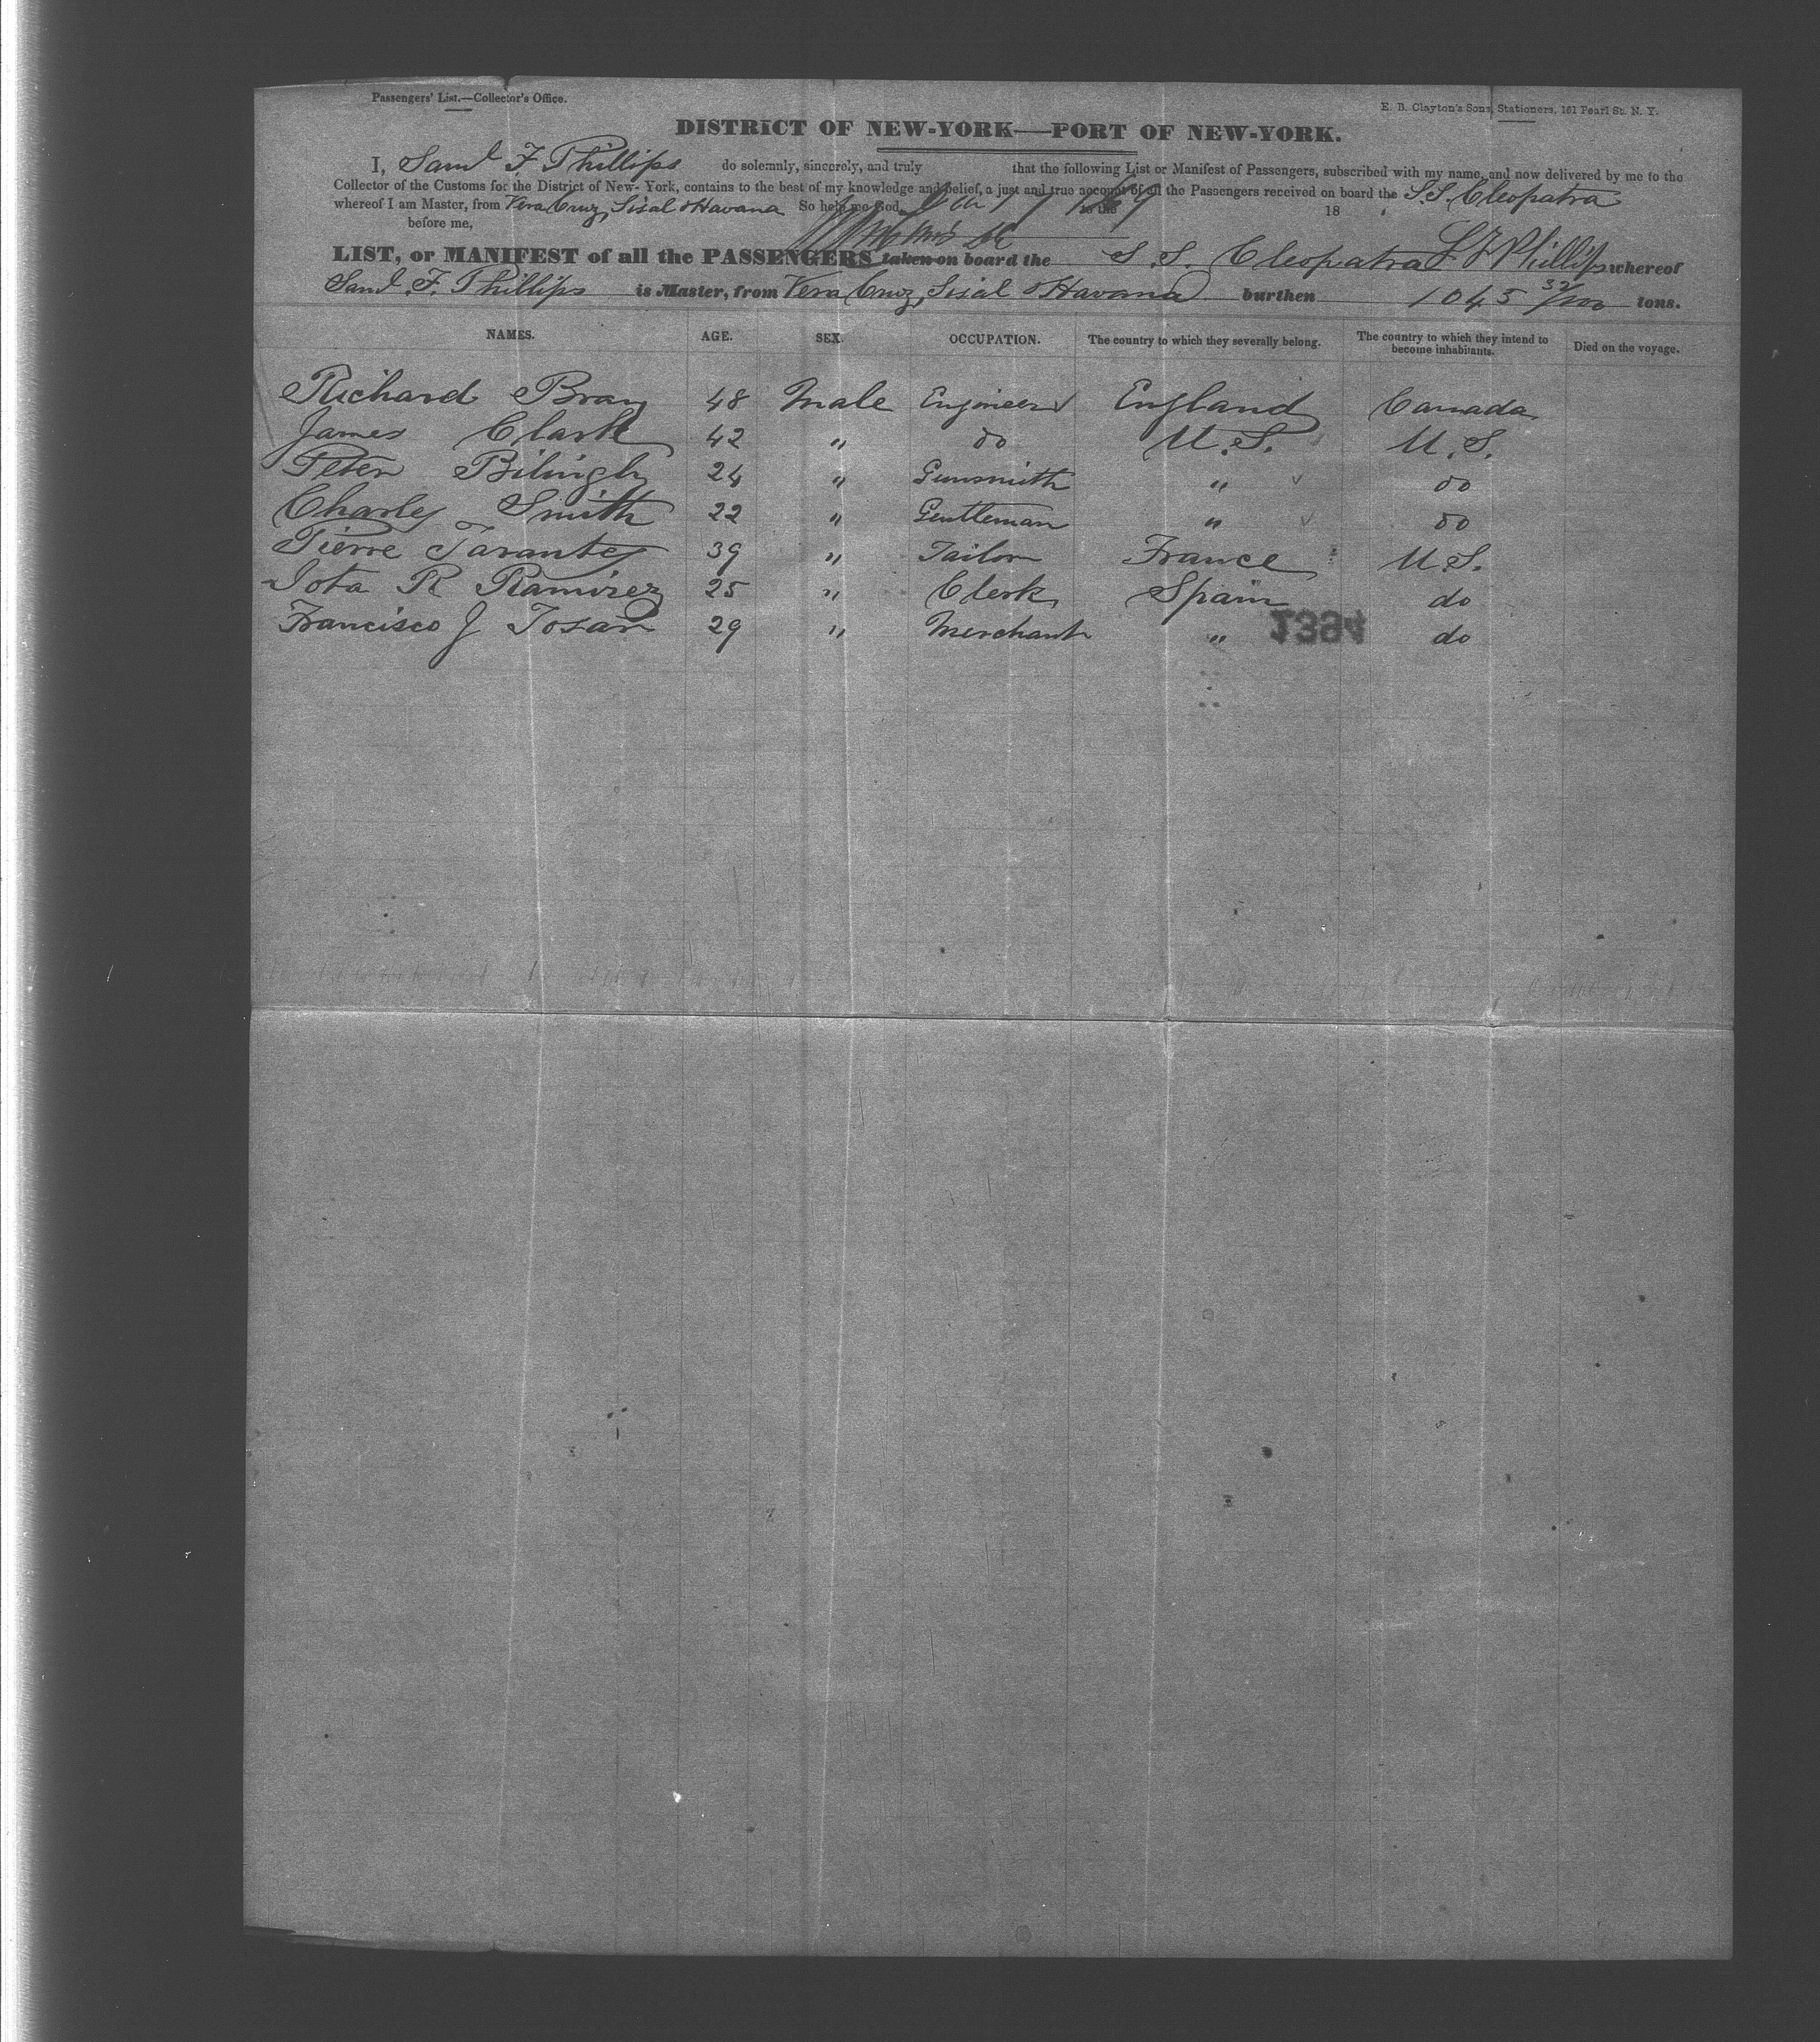 Passengers' List.—Collector's Office.
E. B. Clayton's Sons, Stationers, 161 Pearl St. N. Y.
DISTRICT OF NEW-YORK—PORT OF NEW-YORK.
I, Saml F. Phillips do solemnly, sincerely, and truly that the following List or Manifest of Passengers, subscribed with my name, and now delivered by me to the
Collector of the Customs for the District of New-York, contains to the best of my knowledge and belief, a just and true account of all the Passengers received on board the S.S. Cleopatra
whereof I am Master, from Vera Cruz, Sisal & Havana So help me God. 18
before me,
LIST, or MANIFEST of all the PASSENGERS taken on board the S. S. Cleopatra S F Phillips whereof
Saml F. Phillips is Master, from Vera Cruz, Sisal & Havana burthen 1045 32/100 tons.
NAMES. AGE. SEX. OCCUPATION. The country to which they severally belong. The country to which they intend to become inhabitants. Died on the voyage.
Richard Bray 48 Male Engineer England Canada
James Clark 42 " do U.S. U.S.
Peter 24 " Gunsmith " do
Charles Smith 22 " Gentleman " do
Pierre 39 " Tailor France U.S.
R Ramirez 25 " Clerk Spain do
Francisco J Tosar 29 " Merchant " do
1394